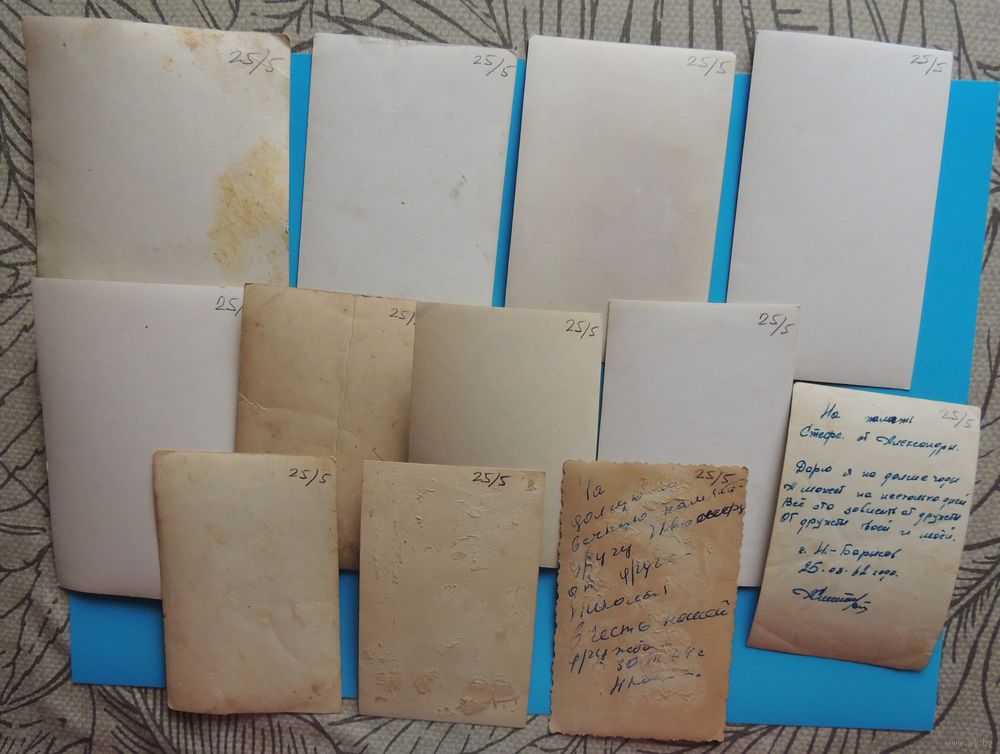 25/5
25/5
25/5
25/5
25/
25/
25/5
25/5
На память
Стефе от Александры.
Дарю я на долгие годы
А может на несколько дней
Всё это зависит от дружбы
От дружбы твоей и моей.
г. Н-Борисов
25/5
25/5
25/5
25/5
На
долгую
вечную память
другу
от друга
Николая
В честь нашей
дружбы
30
www.ay.by